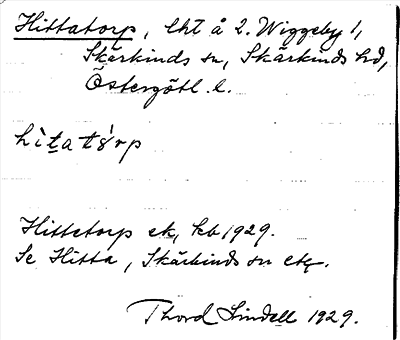 Hittatorp, lht å 2. Wiggeby 1,
Skärkinds sn, Skärkinds hd,
Östergötl. l.
hìtató̤rp
Hittetorp ek, kb 1929.
Se Hitta, Skärkinds sn etc.
Thord Lindell 1929.